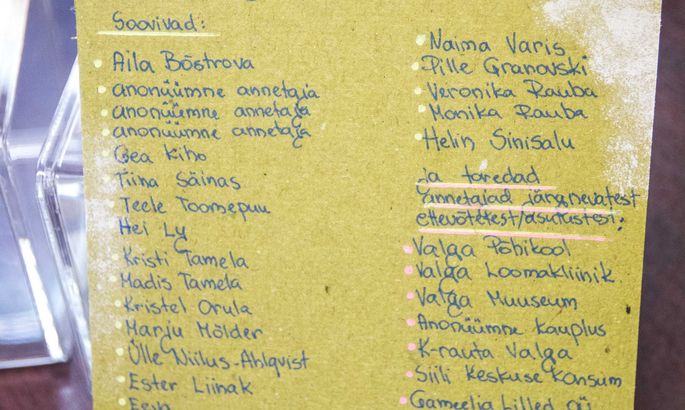 Soovivad:
Aila Bõstrova
anonüümne annetaja
anonüümne annetaja
anonüümne annetaja
Gea Kiho
Tiina Säinas
Teele Toomepuu
Hei Ly
Kristi Tamela
Madis Tamela
Kristel Orula
Marju Mölder
Ülle Niilus-Ahlqvist
Ester Liinak
Naima Varis
Pille Granovski
Veronika Rauba
Monika Rauba
Helin Sinisalu
ja toredad
annetajad järgnevatest
ettevõtetest/asutustest:
Valga Põhikool
Valga Loomakliinik
Valga Muuseum
Anonüümne kauplus
K-rauta Valga
Siili Keskuse Konsum
Gameelia Lilled OÜ